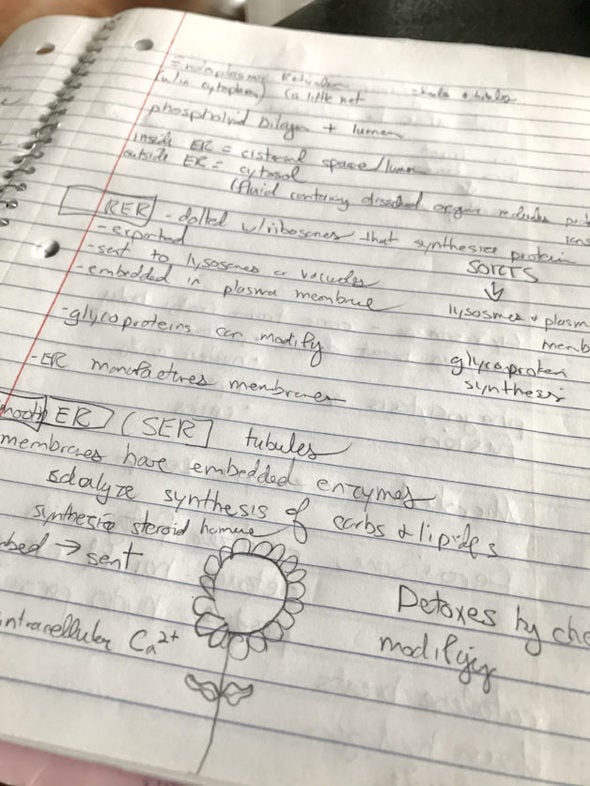 Endoplasmic Reticulum
(w/in cytoplasm) (a little net
phospholipid bilayer + lumen
inside ER = cisternal space/lumen
outside ER = cytosol
(fluid containing dissolved
RER - dotted w/ribosomes that synthesizes protein
- exported
- sent to lysosomes or vacuoles
- embedded in plasma membrane
SORTS
↓
lysosomes + plasm
memb
- glycoproteins can modify
glycoprotein
synthesis
- ER manufactures membranes
mooth ER (SER] tubules
membranes have embedded enzymes
synthesis of carbs & lipids
synthesis steroid
bed → sent
intracellular Ca2+
Detoxes by che
modifying